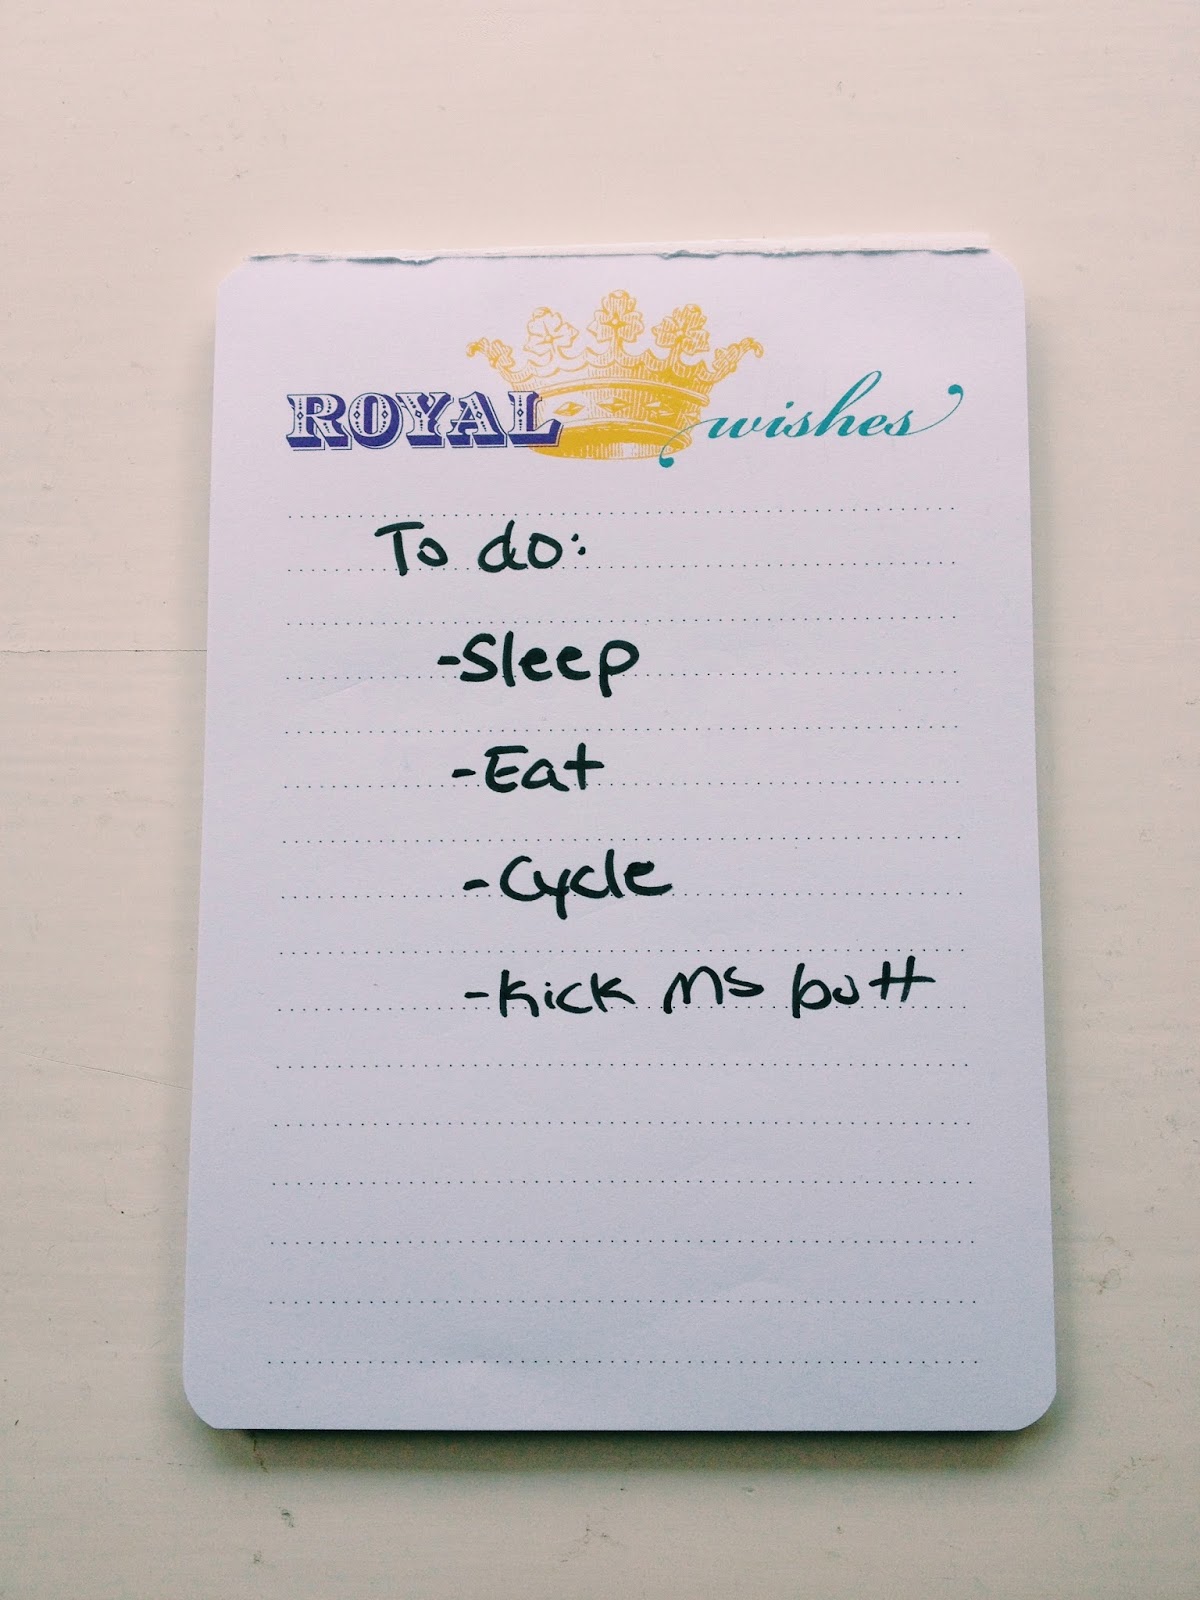 ROYAL wishes
To do:
-Sleep
-Eat
-Cycle
-Kick MS butt